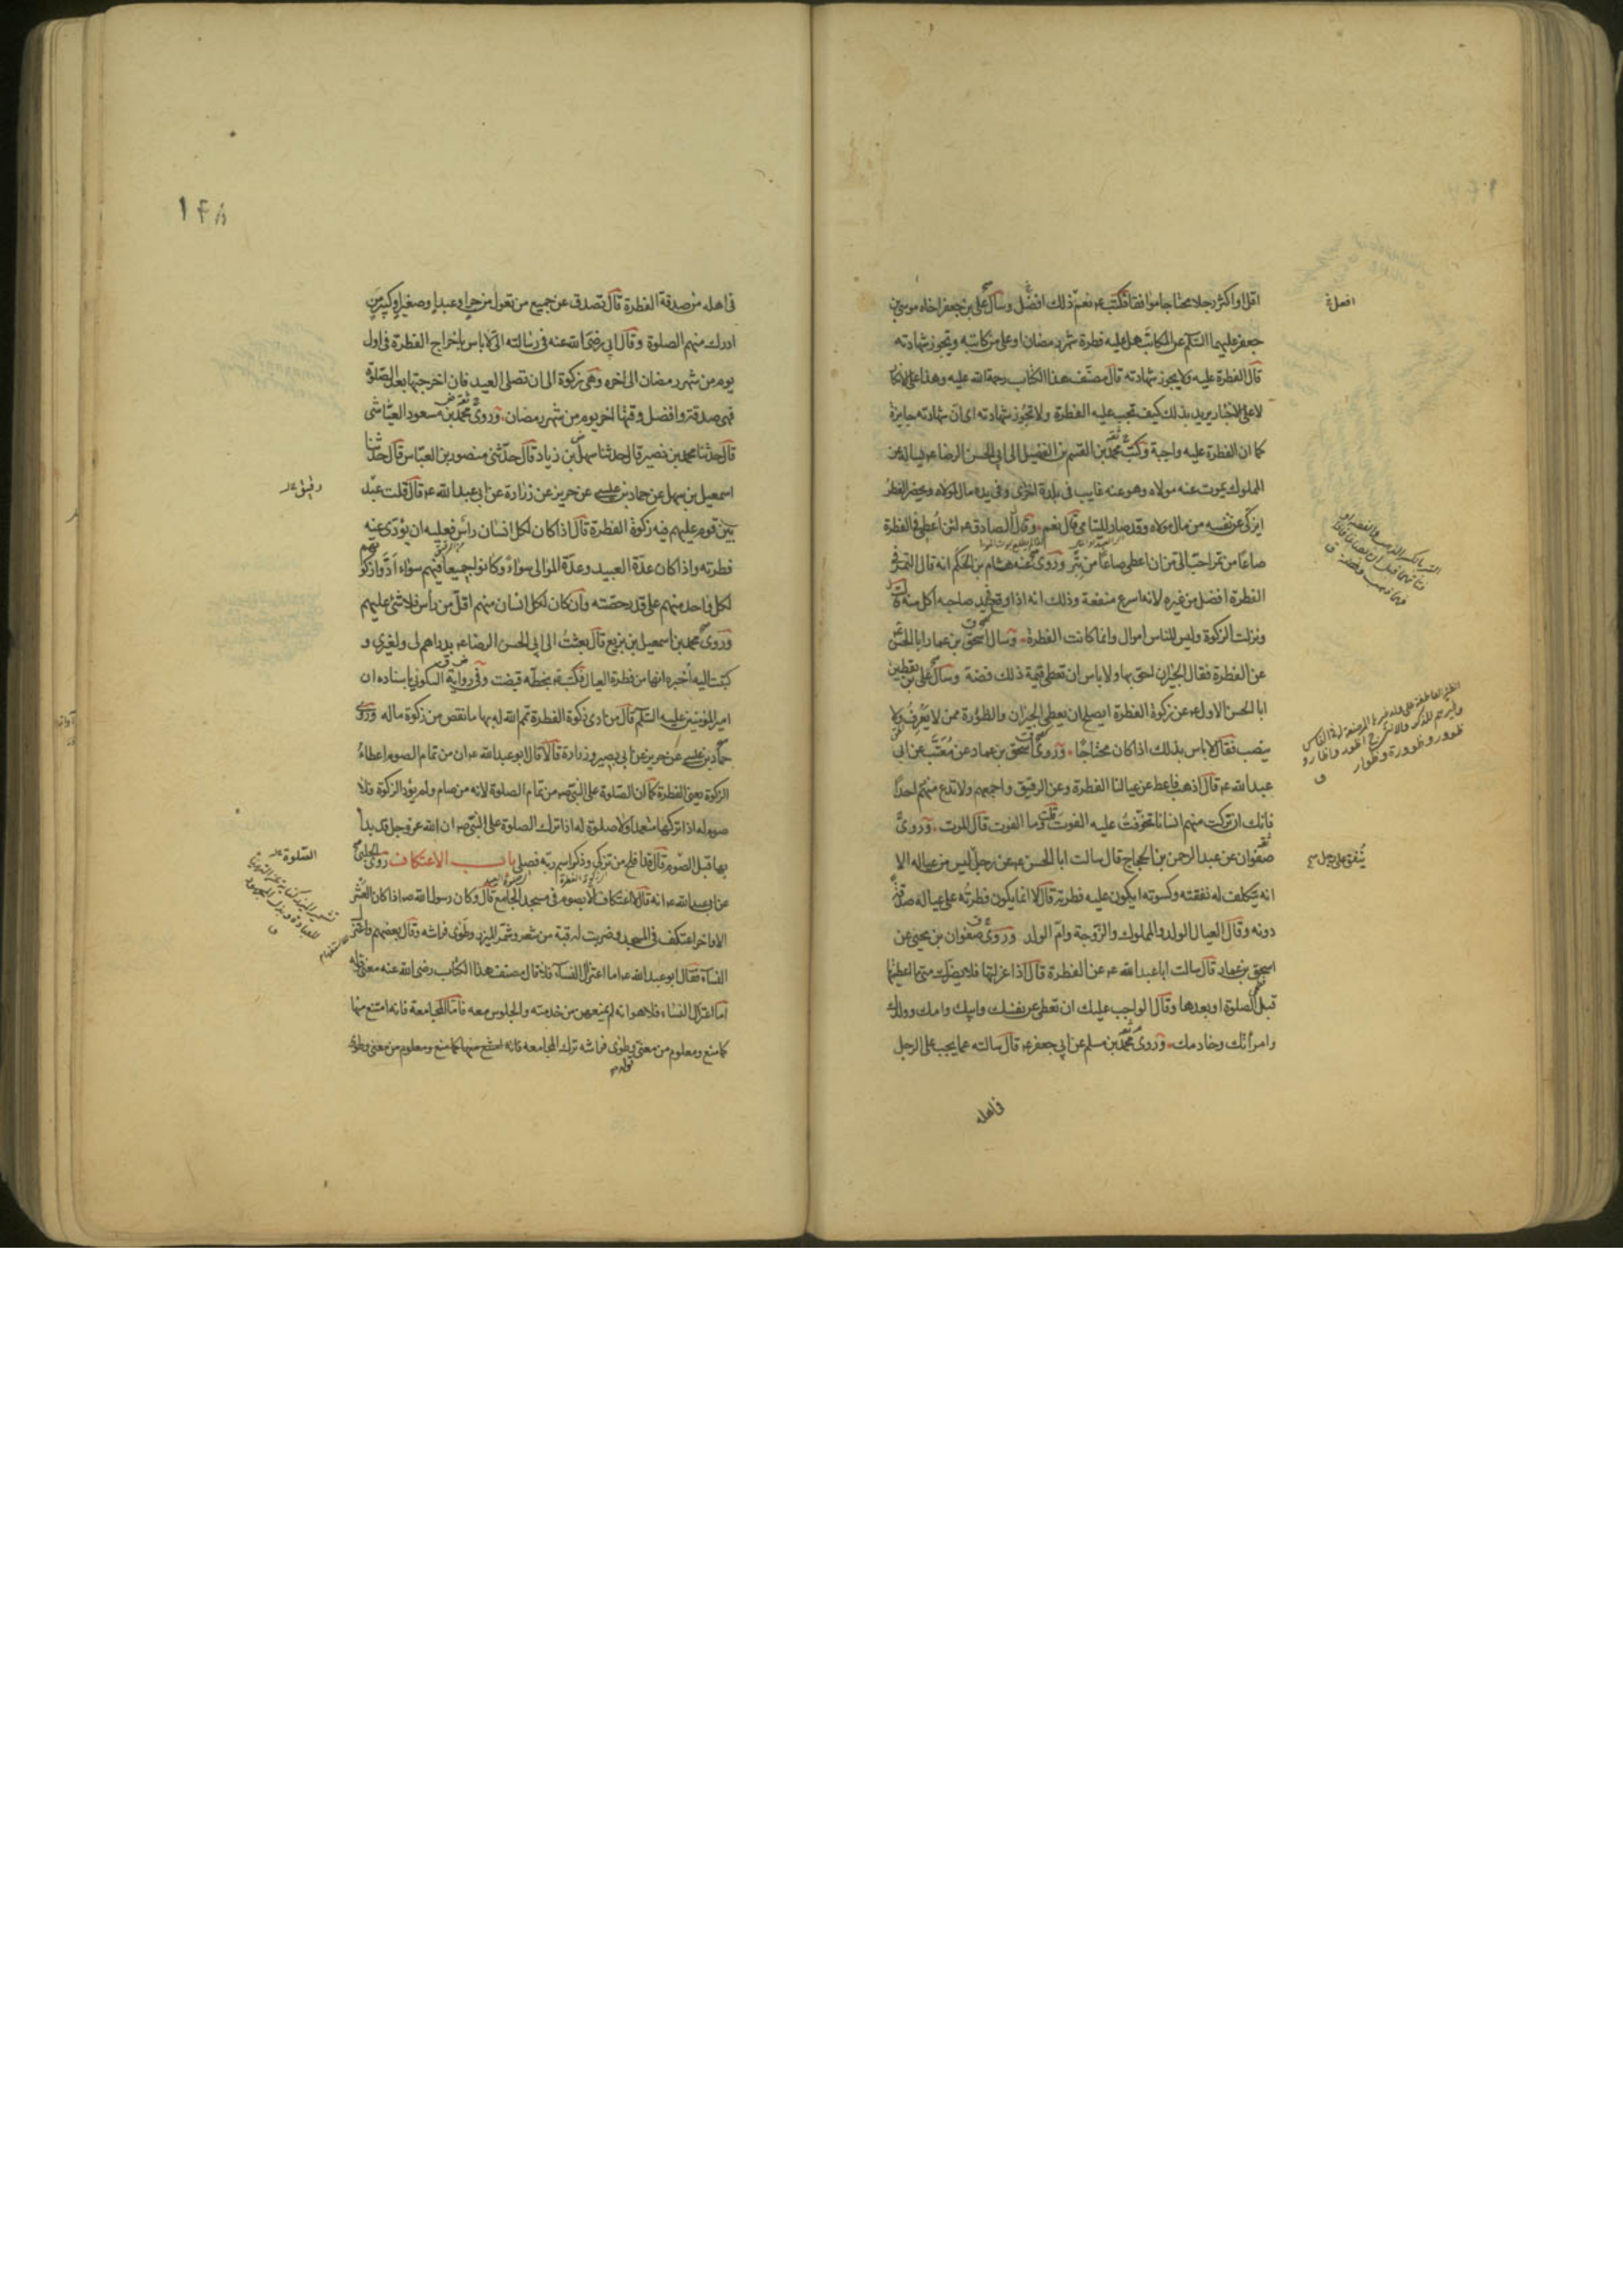 اقل او اكثر رجلا محتاجا موافقا فكتب ع نعم ذلك افضل وسأل علي بن جعفر اخاه موسى بن
جعفر عليهما السلام عن المكاتب هل عليه فطرة شهر رمضان او على من كاتبه وتجوز شهادته
قال الفطرة عليه ولا يجوز شهادته قال مصنف هذا الكتاب رحمة الله عليه وهذا على الانكار
لا على الاخبار يريد بذلك كيف تجب عليه الفطرة ولا تجوز شهادته اى ان شهادته جايزة
كما ان الفطرة عليه واجبة وكتب محمد بن القسم بن الفضيل الى ابي الحسن الرضا ع يسأله عن
المملوك يموت عنه مولاه وهو عنه غايب فى بلدة اخرى وفى يده مال لمولاه ويحضر الفطر
ايزكى عن نفسه من مال مولاه وقد صار لليتامى قال نعم وقال الصادق ع لئن اعطى فى الفطرة
صاعا من تمر احب الى من ان اعطى صاعا من تبر وروى عنه هشام بن الحكم انه قال التمر فى
الفطرة افضل من غيره لانه اسرع منفعة وذلك انه اذا وقع فى يد صاحبه اكل منه قال
ونزلت الزكوة وليس للناس اموال وانما كانت الفطرة وسأل اسحق بن عمار ابا الحسن
عن الفطرة فقال الجيران احق بها ولا باس ان تعطى قيمة ذلك فضة وسأل على بن يقطين
ابا الحسن الاول ع عن زكوة الفطرة ايصلح ان يعطى الجيران والظؤرة ممن لا يعرف ولا
ينصب فقال لا باس بذلك اذا كان محتاجا وروى اسحق بن عمار عن معتب عن ابى
عبد الله ع قال اذهب فاعط عن عيالنا الفطرة وعن الرقيق واجمعهم ولا تدع منهم احدا
فانك ان تركت منهم انسانا تخوفت عليه الفوت قلت وما الفوت قال الموت وروى
صفوان عن عبد الرحمن بن الحجاج قال سالت ابا الحسن ع عن رجل ليس من عياله الا
انه يتكلف له نفقته وكسوته ايكون عليه فطرته قال لا انما يكون فطرته على عياله صدقة
دونه وقال العيال الولد والمملوك والزوجة وام الولد وروى صفوان بن يحيى عن
اسحق بن عمار قال سالت ابا عبد الله ع عن الفطرة قال اذا عزلتها فلا يضرك متى اعطيتها
قبل الصلوة او بعدها وقال الواجب عليك ان تعطى عن نفسك وابيك وامك وولدك
وامرأتك وخادمك وروى محمد بن مسلم عن ابى جعفر ع قال سالته عما يجب على الرجل
فى اهله
ينفق على رجل
١٤٨
فى اهله من صدقة الفطرة قال تصدق عن جميع من تعول من حر او عبد او صغير او كبير من
ادرك منهم الصلوة وقال ابى رضى الله عنه فى رسالته الى لا باس باخراج الفطرة فى اول
يوم من شهر رمضان الى اخره وهى زكوة الى ان تصلى العيد فان اخرجتها بعد الصلوة
فهى صدقة وافضل وقتها اخر يوم من شهر رمضان وروى محمد بن مسعود العياشى
قال حدثنا محمد بن نصير قال حدثنا سهل بن زياد قال حدثنى منصور بن العباس قال حدثنا
اسمعيل بن سهل عن حماد بن عيسى عن حريز عن زرارة عن ابى عبد الله ع قال قلت عبد
بين قوم عليهم فيه زكوة الفطرة قال اذا كان لكل انسان رأس فعليه ان يؤدى عنه
فطرته واذا كان عدة العبيد وعدة الموالى سواء وكانوا جميعا فيهم سواء ادوا زكوتهم
لكل واحد منهم على قدر حصته وان كان لكل انسان منهم اقل من رأس فلا شئ عليهم
وروى محمد بن اسمعيل بن بزيع قال بعثت الى ابى الحسن الرضا ع بدراهم لى ولغيرى و
كتبت اليه اخبره انها من فطرة العيال فكتب ع بخطه قبضت وفى رواية السكونى باسناده ان
امير المؤمنين عليه السلام قال من ادى زكوة الفطرة تمم الله له بها ما نقص من زكوة ماله وروى
حماد بن عيسى عن حريز عن ابى بصير وزرارة قالا قال ابو عبد الله ع ان من تمام الصوم اعطاء
الزكوة يعنى الفطرة كما ان الصلوة على النبى ص من تمام الصلوة لانه من صام ولم يؤد الزكوة فلا
صوم له اذا تركها متعمدا ولا صلوة له اذا ترك الصلوة على النبى ص ان الله عز وجل قد بدا
بها قبل الصوم قال قد افلح من تزكى وذكر اسم ربه فصلى باب الاعتكاف روى الحلبى
عن ابى عبد الله ع انه قال لا اعتكاف الا بصوم فى مسجد الجامع قال وكان رسول الله ص اذا كان العشر
الاواخر اعتكف فى المسجد وضربت له قبة من شعر وشمر الميزر وطوى فراشه وقال بعضهم واعتزل
النساء فقال ابو عبد الله ع اما اعتزال النساء فلا قال مصنف هذا الكتاب رضى الله عنه معنى قوله
اما اعتزال النساء فلا هو انه لم يمنعهن من خدمته والجلوس معه فاما المجامعة فانه امتنع منها
كما منع ومعلوم من معنى قوله وطوى فراشه ترك المجامعة
رقيق
الصلوة